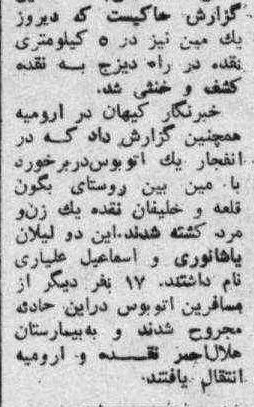 گزارش حاکیست که دیروز
یك مین نیز در ٥ کیلومتری
نقده در راه دیزج به نقده
کشف و خنثی شد.
خبرنگار کیهان در ارومیه
همچنین گزارش داد که در
انفجار یك اتوبوس‌دربرخورد
با مین بین روستای بگون
قلعه و خلیفان نقده یك زن‌و
مرد کشته شدند.این دو لیلان
پاشانوری و اسماعیل علیاری
نام داشتند. ۱۷ نفر دیگر از
مسافرین اتوبوس دراین حادثه
مجروح شدند و به‌بیمارستان
هلال‌احمر نقــده و ارومیه
انتقال یافتند.